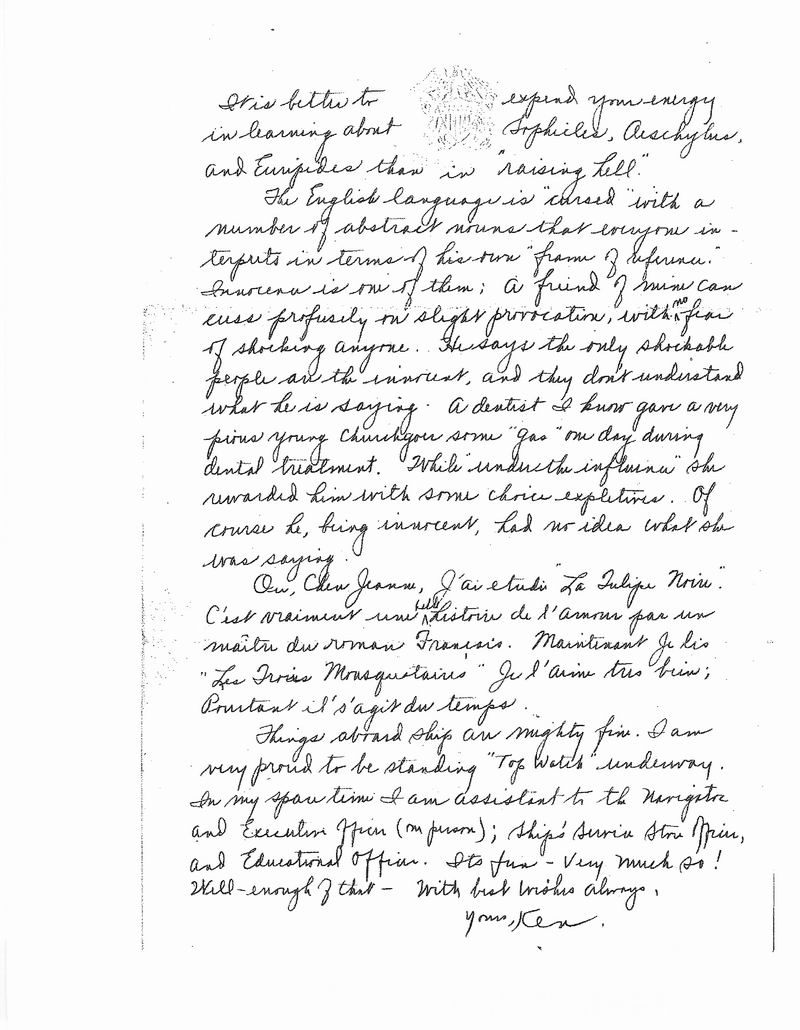 It is better to expend your energy
in learning about Sophicles, Aeschylus,
and Euripides than in "raising hell."
The English language is "cursed" with a
number of abstract nouns that everyone in-
terprets in terms of his own "frame of reference."
Innocence is one of them; A friend of mine can
cuss profusely on slight provocation, with no fear
of shocking anyone. He says the only shockable
people are the innocent, and they don't understand
what he is saying. A dentist I know gave a very
pious young churchgoer some "gas" one day during
dental treatment. While "under the influence" she
rewarded him with some choice expletives. Of
course he, being innocent, had no idea what she
was saying.
Oui, Cher Jeanne, J'ai etudie "La Tulipe Noire".
C'est vraiment une belle histoire de l'amour par un
maître du roman Francais. Maintenant Je lis
"Les Trois Mousquetaires" Je l'aime tres bien;
Pourtant il s'agit du temps.
Things aboard ship are mighty fine. I am
very proud to be standing "Top Watch" underway.
In my spare time I am assistant to the Navigator
and Executive Officer (one person); Ship's Service Store Officer,
and Educational Officer. Its fun - Very much so!
Well - enough of that - With best wishes always,
Yours, Ken.